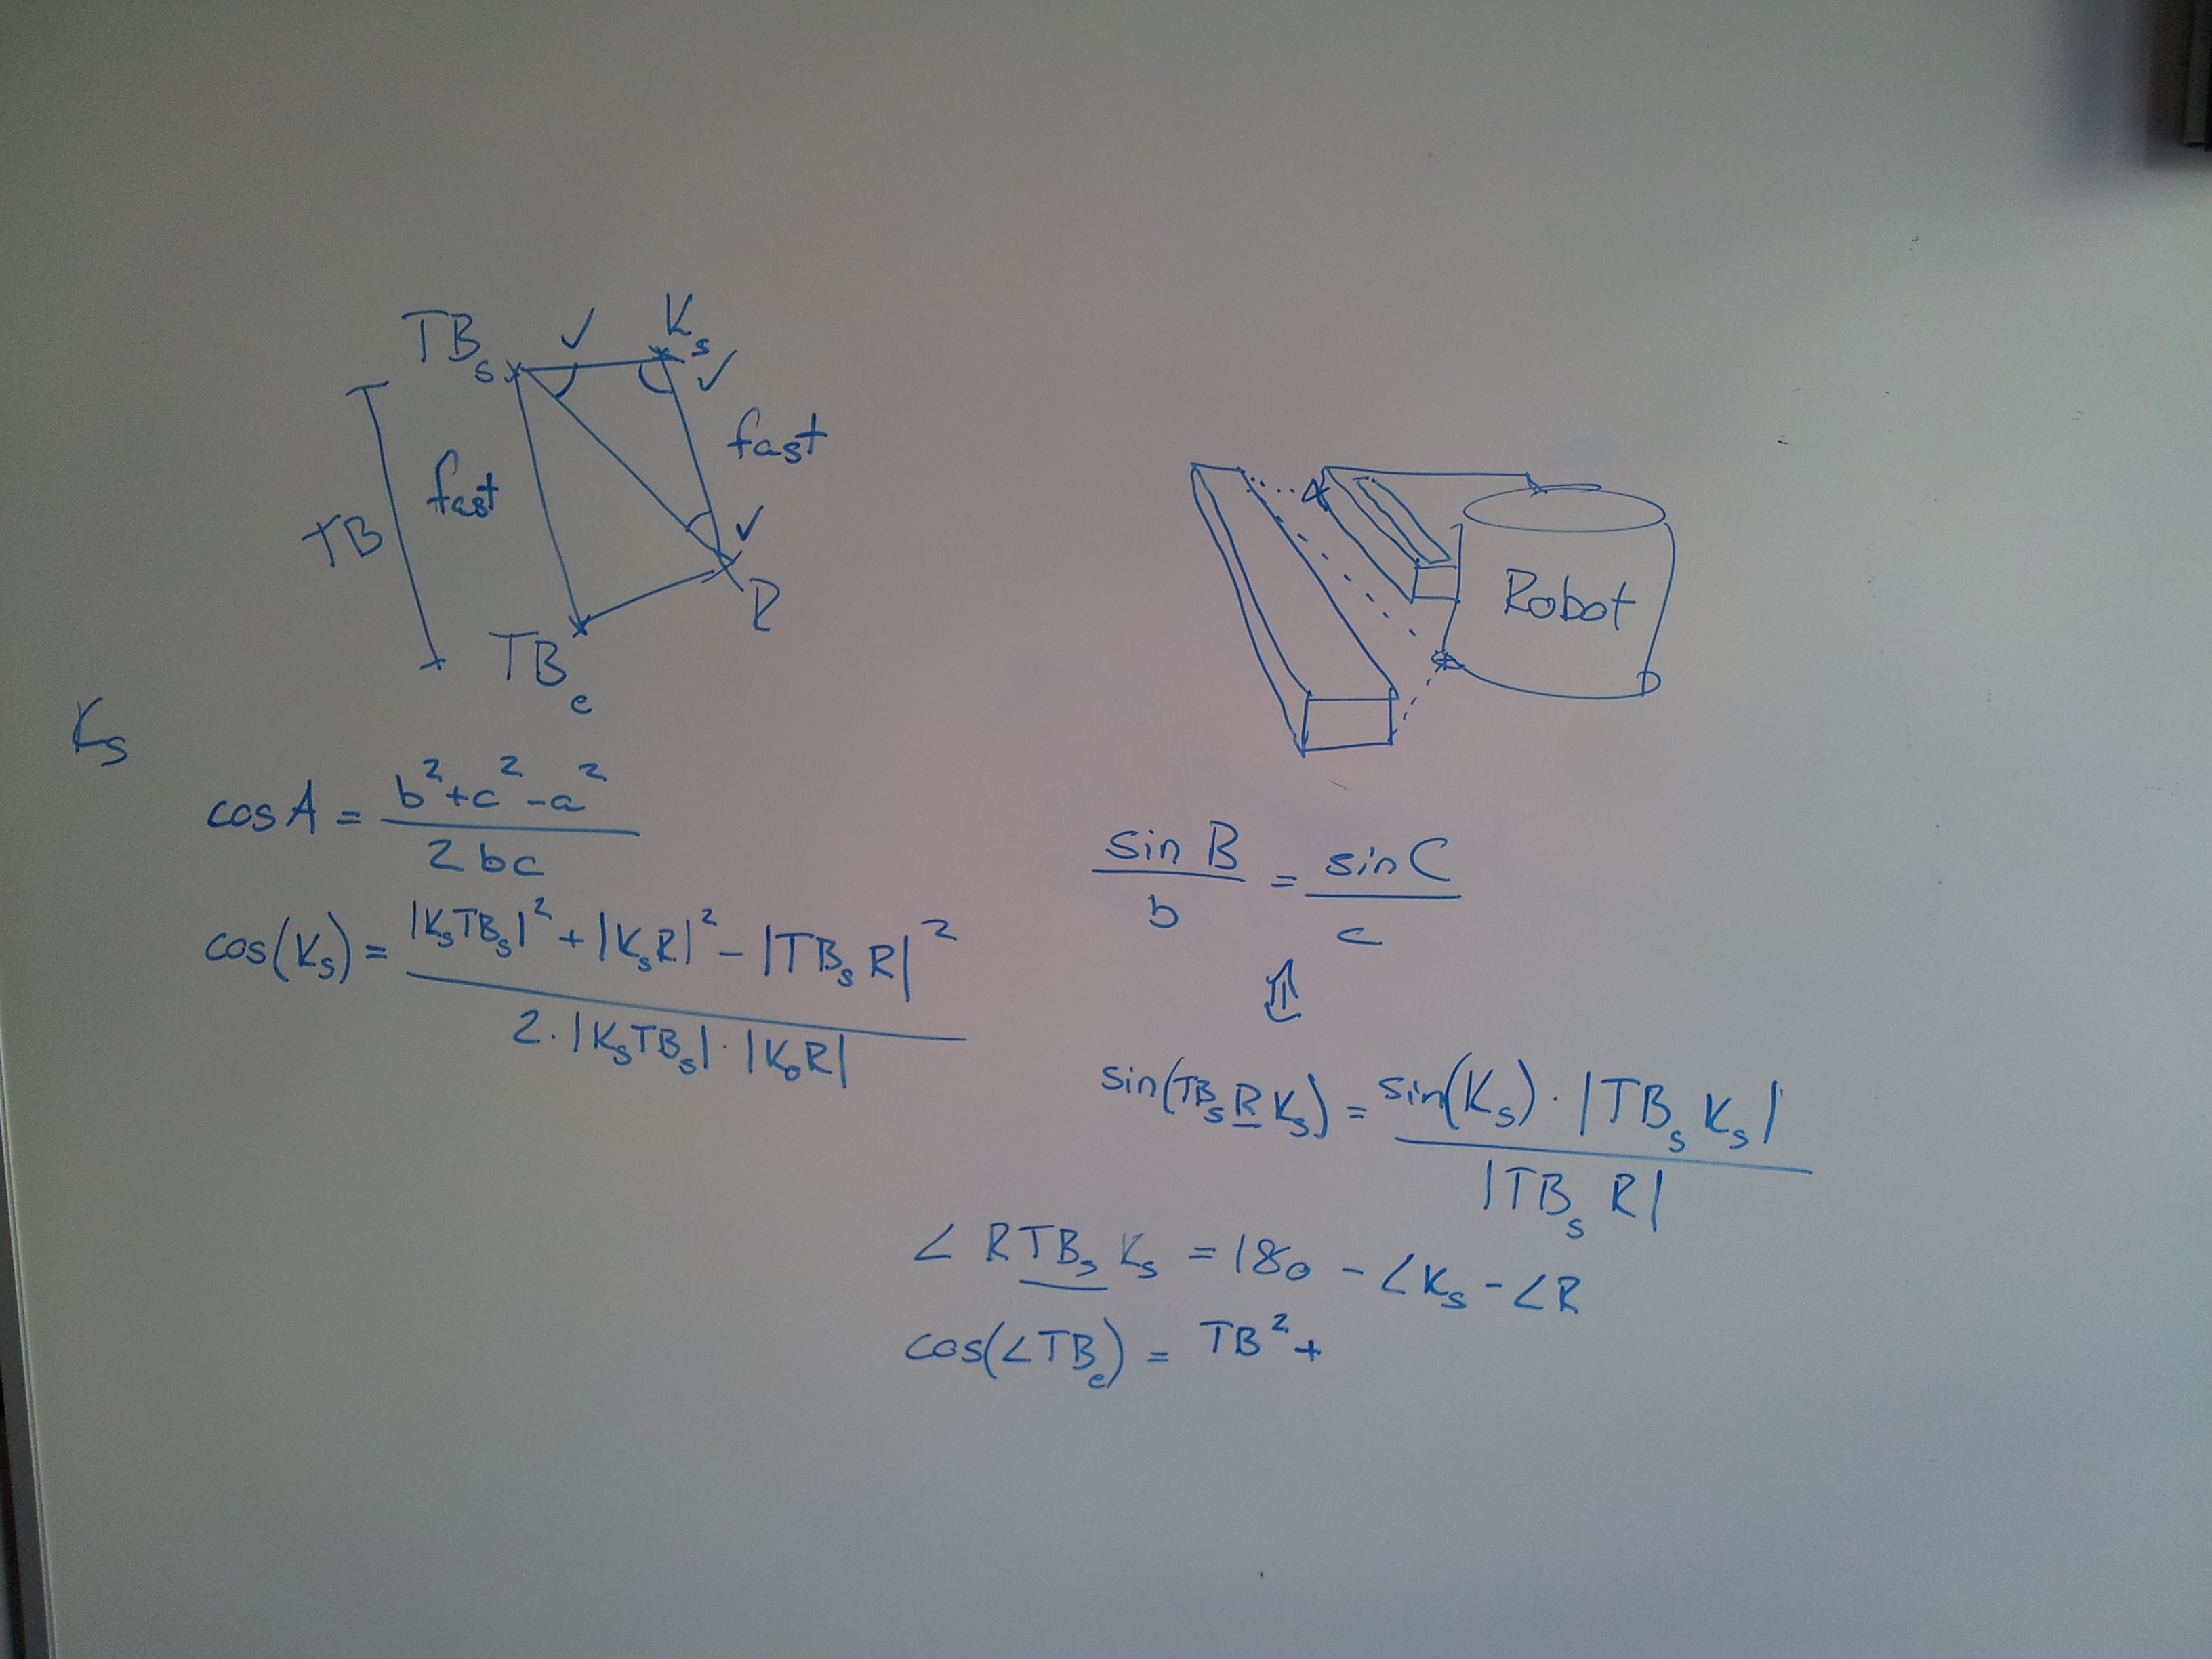 TBs ✓ Ks
✓
fast
fast
TB
✓
R
TBe
Robot
Ks
cos A = b² + c² - a² / 2bc
cos(Ks) = |KsTBs|² + |KsR|² - |TBsR|² / 2·|KsTBs|·|KsR|
sin B / b = sin C / c
⇕
sin(TBsRKs) = sin(Ks)·|TBsKs| / |TBsR|
∠RTBsKs = 180 - ∠Ks - ∠R
cos(∠TBe) = TB² +